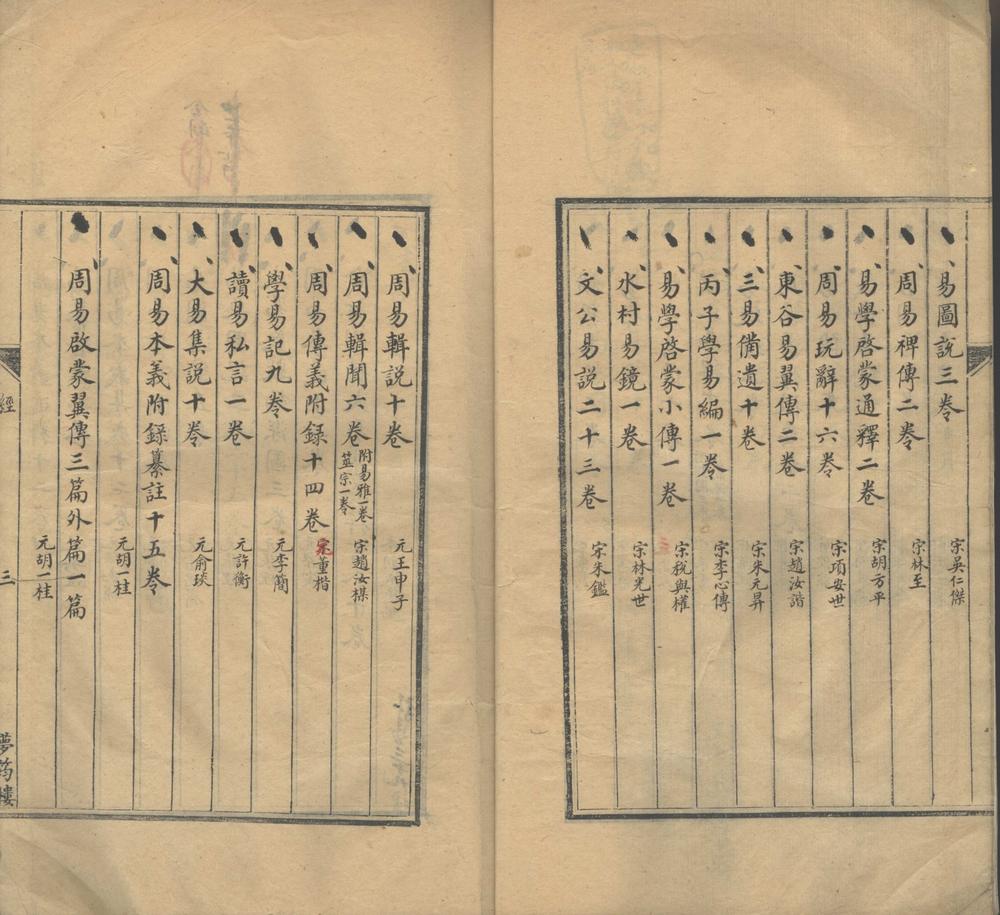 易圖說三卷 宋吳仁傑
周易裨傳二卷 宋林至
易學啓蒙通釋二卷 宋胡方平
周易玩辭十六卷 宋項安世
東谷易翼傳二卷 宋趙汝諧
三易備遺十卷 宋朱元昇
丙子學易編一卷 宋李心傳
易學啓蒙小傳一卷 宋稅與權
水村易鏡一卷 宋林光世
文公易說二十三卷 宋朱鑑
周易輯說十卷 元王申子
周易輯聞六卷 附易雅一卷 筮宗一卷 宋趙汝楳
周易傳義附錄十四卷 宋董楷
學易記九卷 元李簡
讀易私言一卷 元許衡
大易集說十卷 元俞琰
周易本義附錄纂註十五卷 元胡一桂
周易啟蒙翼傳三篇外篇一篇 元胡一桂
經 三 夢筠樓